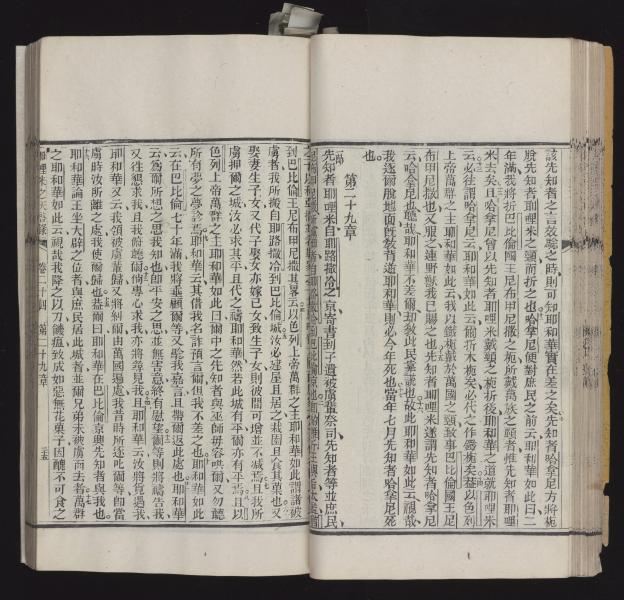 該先知者之言效驗之時則可知耶和華實在差之矣先知者哈拿尼方將軛
脫先知者耶哩米之頸而折之也哈拿尼便對庶民之前云耶和華如此曰二
年滿我將折巴比倫國王尼布甲尼撒之軛所戴萬族之頸者惟先知者耶哩
米去矣且哈拿尼曾以先知者耶哩米戴頸之軛折後耶和華之道就耶哩米
云必往謂哈拿尼云耶和華如此云爾折木軛矣必代之作鐵軛矣蓋以色列
上帝萬羣之主耶和華如此云我以鐵軛戴於萬國之頸致事巴比倫國王尼
布甲尼撒也又服之連野獸我已賜之也先知者耶哩米遂謂先知者哈拿尼
云哈拿尼也聽哉耶和華不差爾却教此民棄謊也故此耶和華如此云視哉
我逐爾脫地面旣敎背逆耶和華則必今年死也當年七月先知者哈拿尼死
也
第二十九章
先知者耶哩米自耶路撒冷之京寄書到子遺被虜蜚祭司先知者等並庶民
到巴比倫王尼布甲尼撒其書云以色列上帝萬羣之主耶和華如此謂諸被
虜者我所徹自耶路撒冷到巴比倫城汝必建屋且居之栽園且食其菓也又
娶妻生子女又代子娶女亦嫁己女致生子女則彼間可增並不減焉且以我所
虜押爾之城汝必求其平且代之禱耶和華然若此城有平爾亦有平焉且以
色列上帝萬羣之主耶和華如此曰爾中之先知者與巫師毋容哄爾又勿聽
所有夢之夢諗焉耶和華云其借我名詐預言爾但我不差之也耶和華如此
云在巴比倫七十年滿我將垂顧爾等又驗我嘉言且帶爾返此處也耶和華
云爲爾所想之思我知也卽平安之思並無害意終有慰望爾等則將禱告我
又往懇求我且我俯聽爾倘專心求我亦將尋見我且耶和華云汝將覓遇我
耶和華又云我領被虜輩歸又將糾爾由萬國遍處我昔時所逐叱爾等卽當
虜時汝所離之處我使爾歸也蓋爾曰耶和華在巴比倫京興先知者與我也
耶和華論王坐大辟之位者與庶民居此城者並爾兄弟未被虜而去者萬羣
之耶和華如此云視哉我降之以刀饑瘟致成如惡無花菓子因醜不可食之
卷二十四 第二十九章